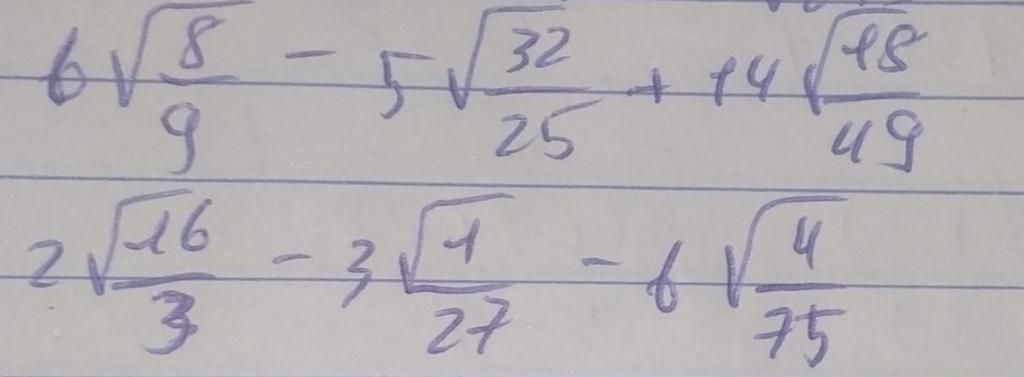 6√(8/9) - 5√(32/25) + 14√(18/49)
2√(16/3) - 3√(1/27) - 6√(4/75)